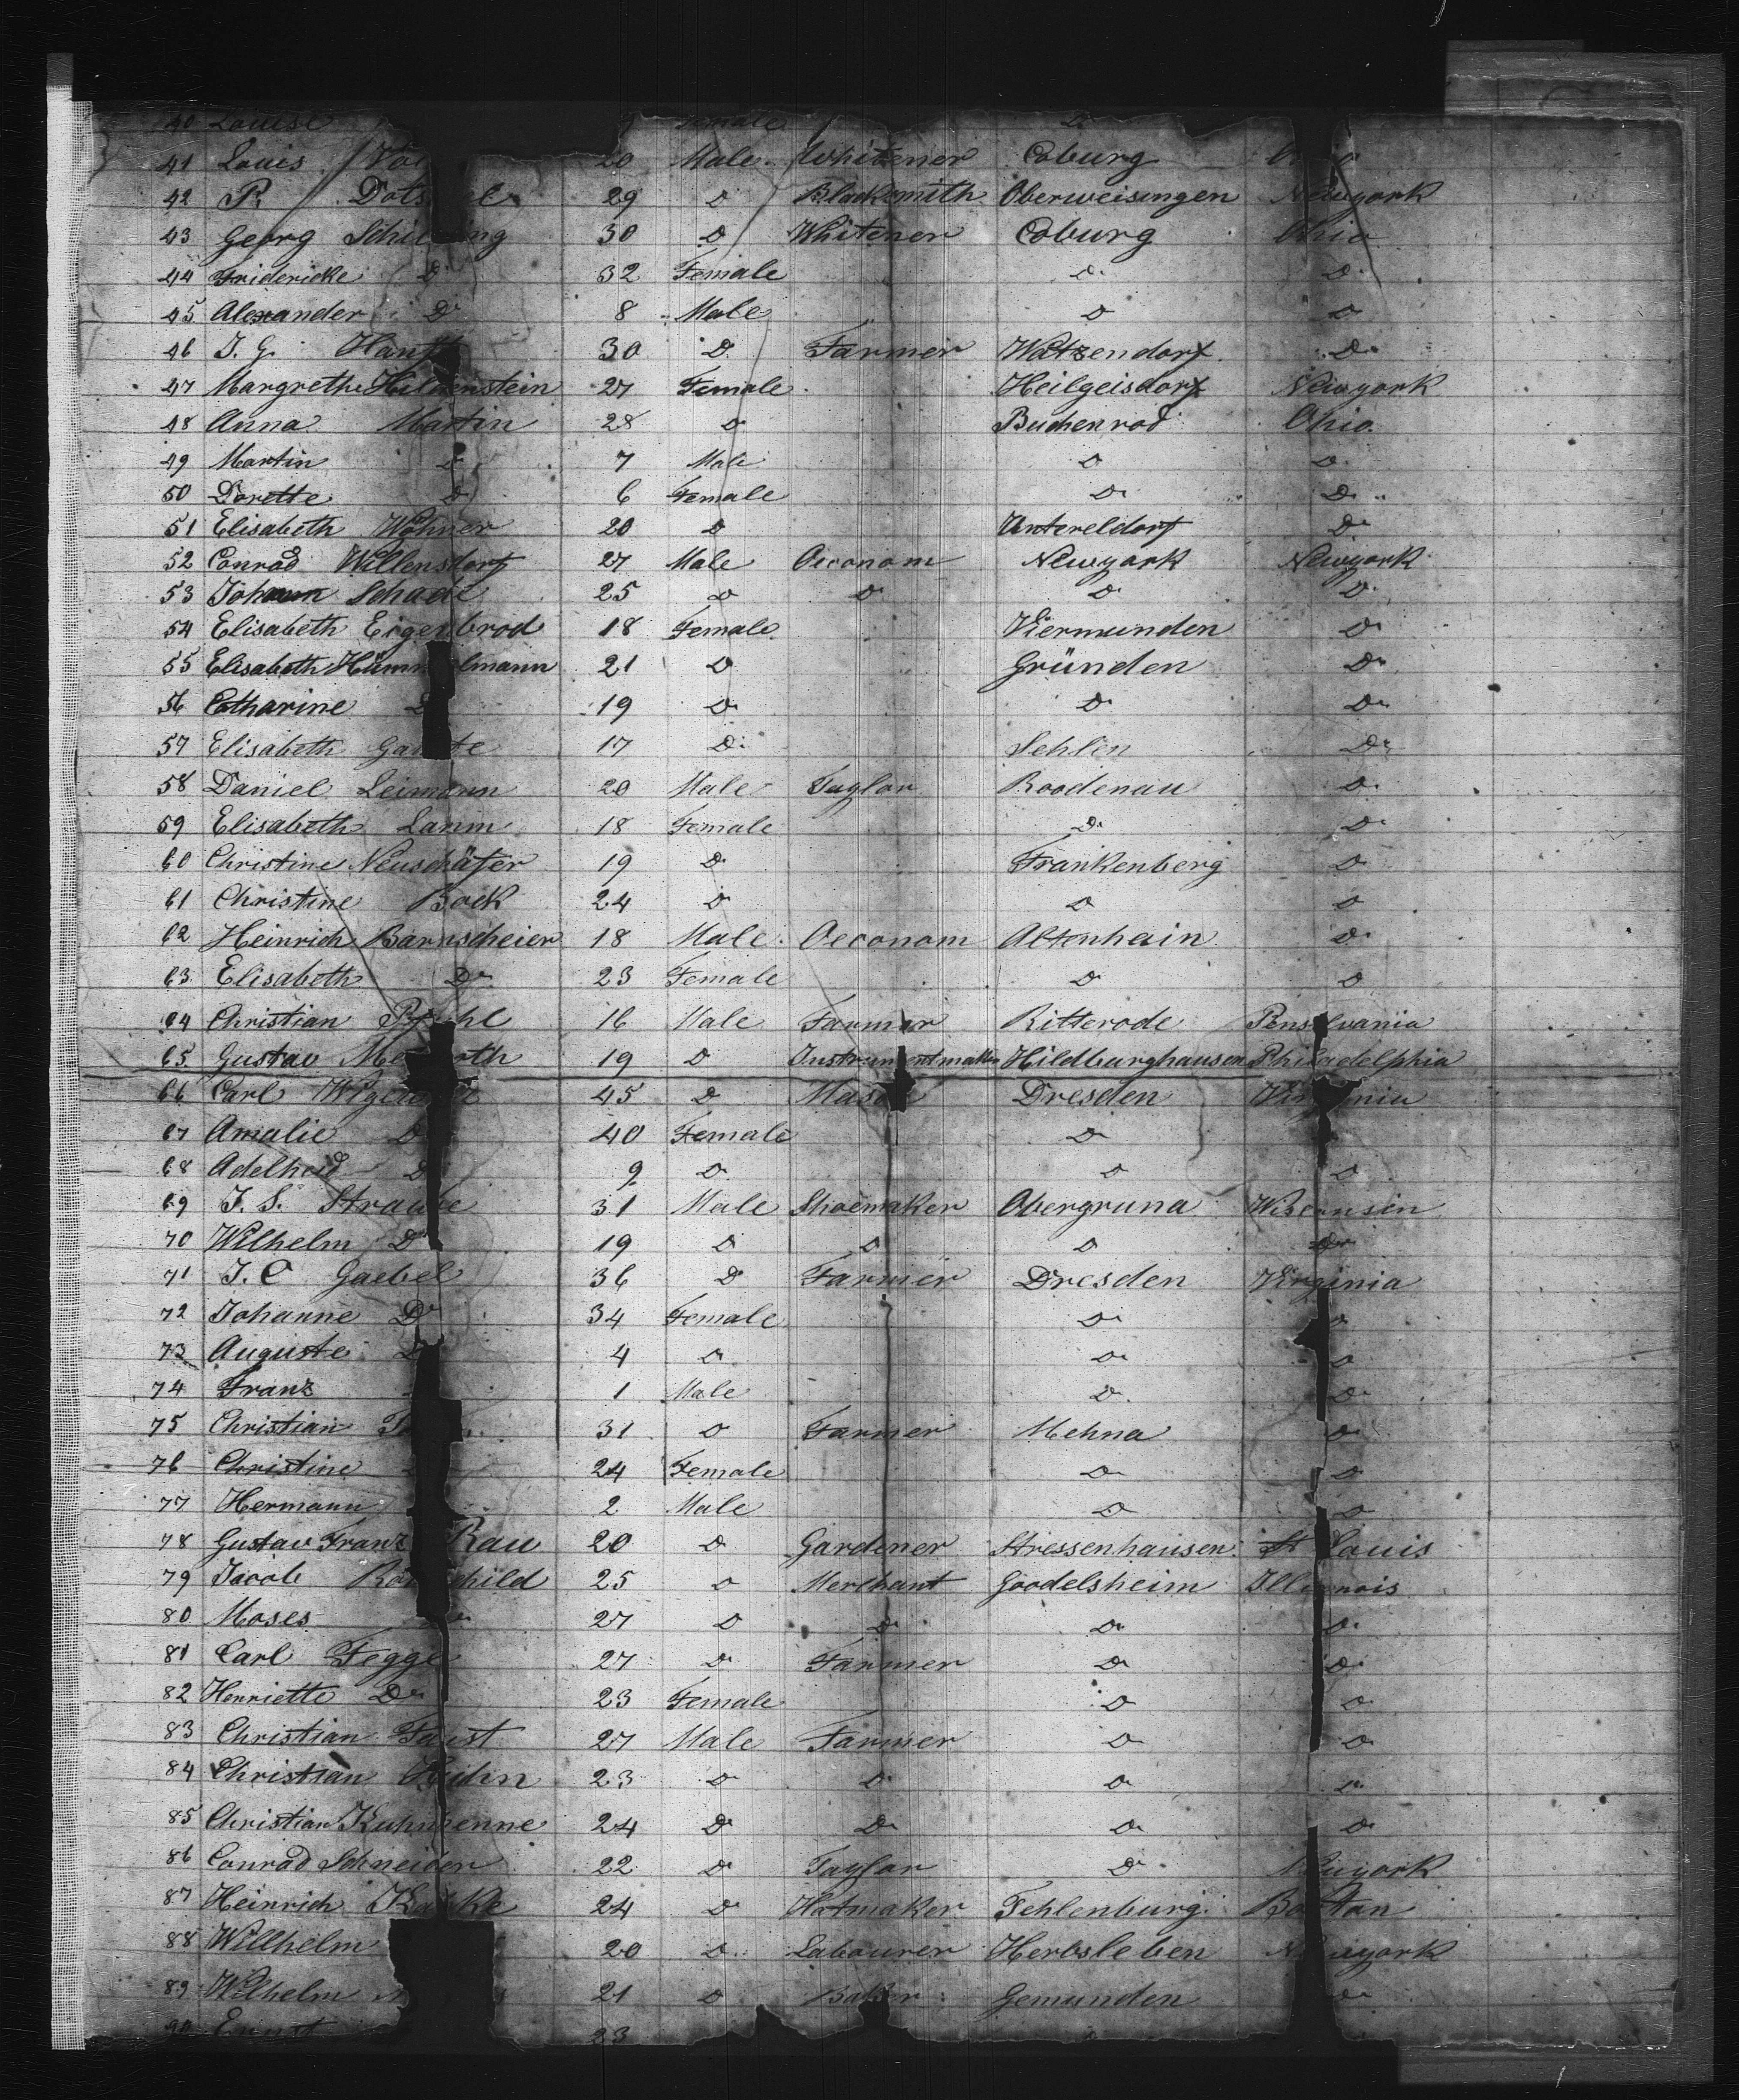 40 Louise Female Do
41 Louis 20 Male Whitener Coburg
42 P. 29 Do Blacksmith Oberweisingen Newyork
43 Georg 30 Do Whitener Coburg Ohio
44 Fridericke Do 32 Female Do Do
45 Alexander Do 8 Male Do Do
46 J. G. 30 Do Farmer Watzendorf Do
47 Margrethe 27 Female Heilgeisdorf Newyork
48 Anna Martin 28 Do Buchenrod Ohio
49 Martin Do 7 Male Do Do
50 Dorette Do 6 Female Do Do
51 Elisabeth Wöhner 20 Do Untereldorf Do
52 Conrad Willensdorf 27 Male Oeconom Newyork Newyork
53 Johann Schade 25 Do Do Do Do
54 Elisabeth Eigenbrod 18 Female Viermunden Do
55 Elisabeth 21 Do Gründen Do
56 Catharine 19 Do Do Do
57 Elisabeth 17 Do Sehlen Do
58 Daniel Leimann 20 Male Taylor Roodenau Do
59 Elisabeth Lamm 18 Female Do Do
60 Christine Neuschäfer 19 Do Frankenberg Do
61 Christine Bock 24 Do Do Do
62 Heinrich Barnscheier 18 Male Oeconom Altenhain Do
63 Elisabeth Do 23 Female Do Do
64 Christian 16 Male Farmer Ritterode Pensylvania
65 Gustav 19 Do Instrumentmaker Hildburghausen Philadelphia
66 Carl 45 Do Mason Dresden Virginia
67 Amalie Do 40 Female Do
68 Adelheid Do 9 Do Do Do
69 J. S. Straube 31 Male Shoemaker Obergruna Wisconsin
70 Wilhelm Do 19 Do Do Do Do
71 J. C Gaebel 36 Do Farmer Dresden Virginia
72 Johanne Do 34 Female Do Do
73 Auguste Do 4 Do Do Do
74 Franz 1 Male Do Do
75 Christian 31 Do Farmer Mehna Do
76 Christine 24 Female Do Do
77 Hermann 2 Male Do Do
78 Gustav Franz Rau 20 Do Gardener Stressenhausen St Louis
79 Jacob 25 Do Merchant Goodelsheim Illinois
80 Moses Do 27 Do Do Do Do
81 Carl Fegge 27 Do Farmer Do Do
82 Henriette Do 23 Female Do Do
83 Christian Faust 27 Male Farmer Do Do
84 Christian 23 Do Do Do Do
85 Christian 24 Do Do Do Do
86 Conrad Schneider 22 Do Taylor Do Newyork
87 Heinrich 24 Do Hatmaker Fehlenburg Boston
88 Willhelm 20 Do Labourer Herbsleben Newyork
89 Wilhelm 21 Do Baker Gemunden Do
90 Ernst 23